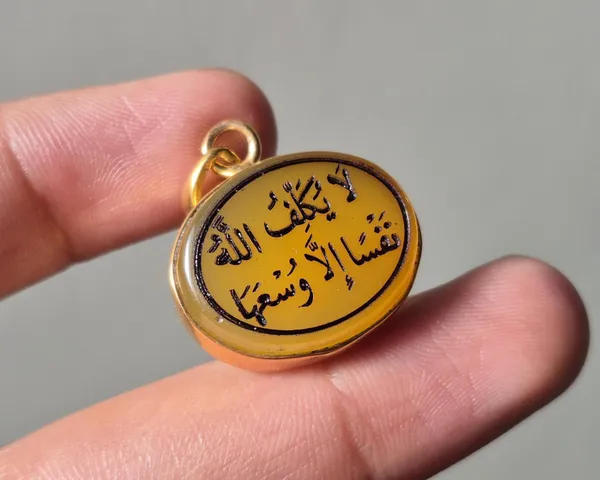 لَا يُكَلِّفُ اللَّهُ
نَفْسًا إِلَّا وُسْعَهَا